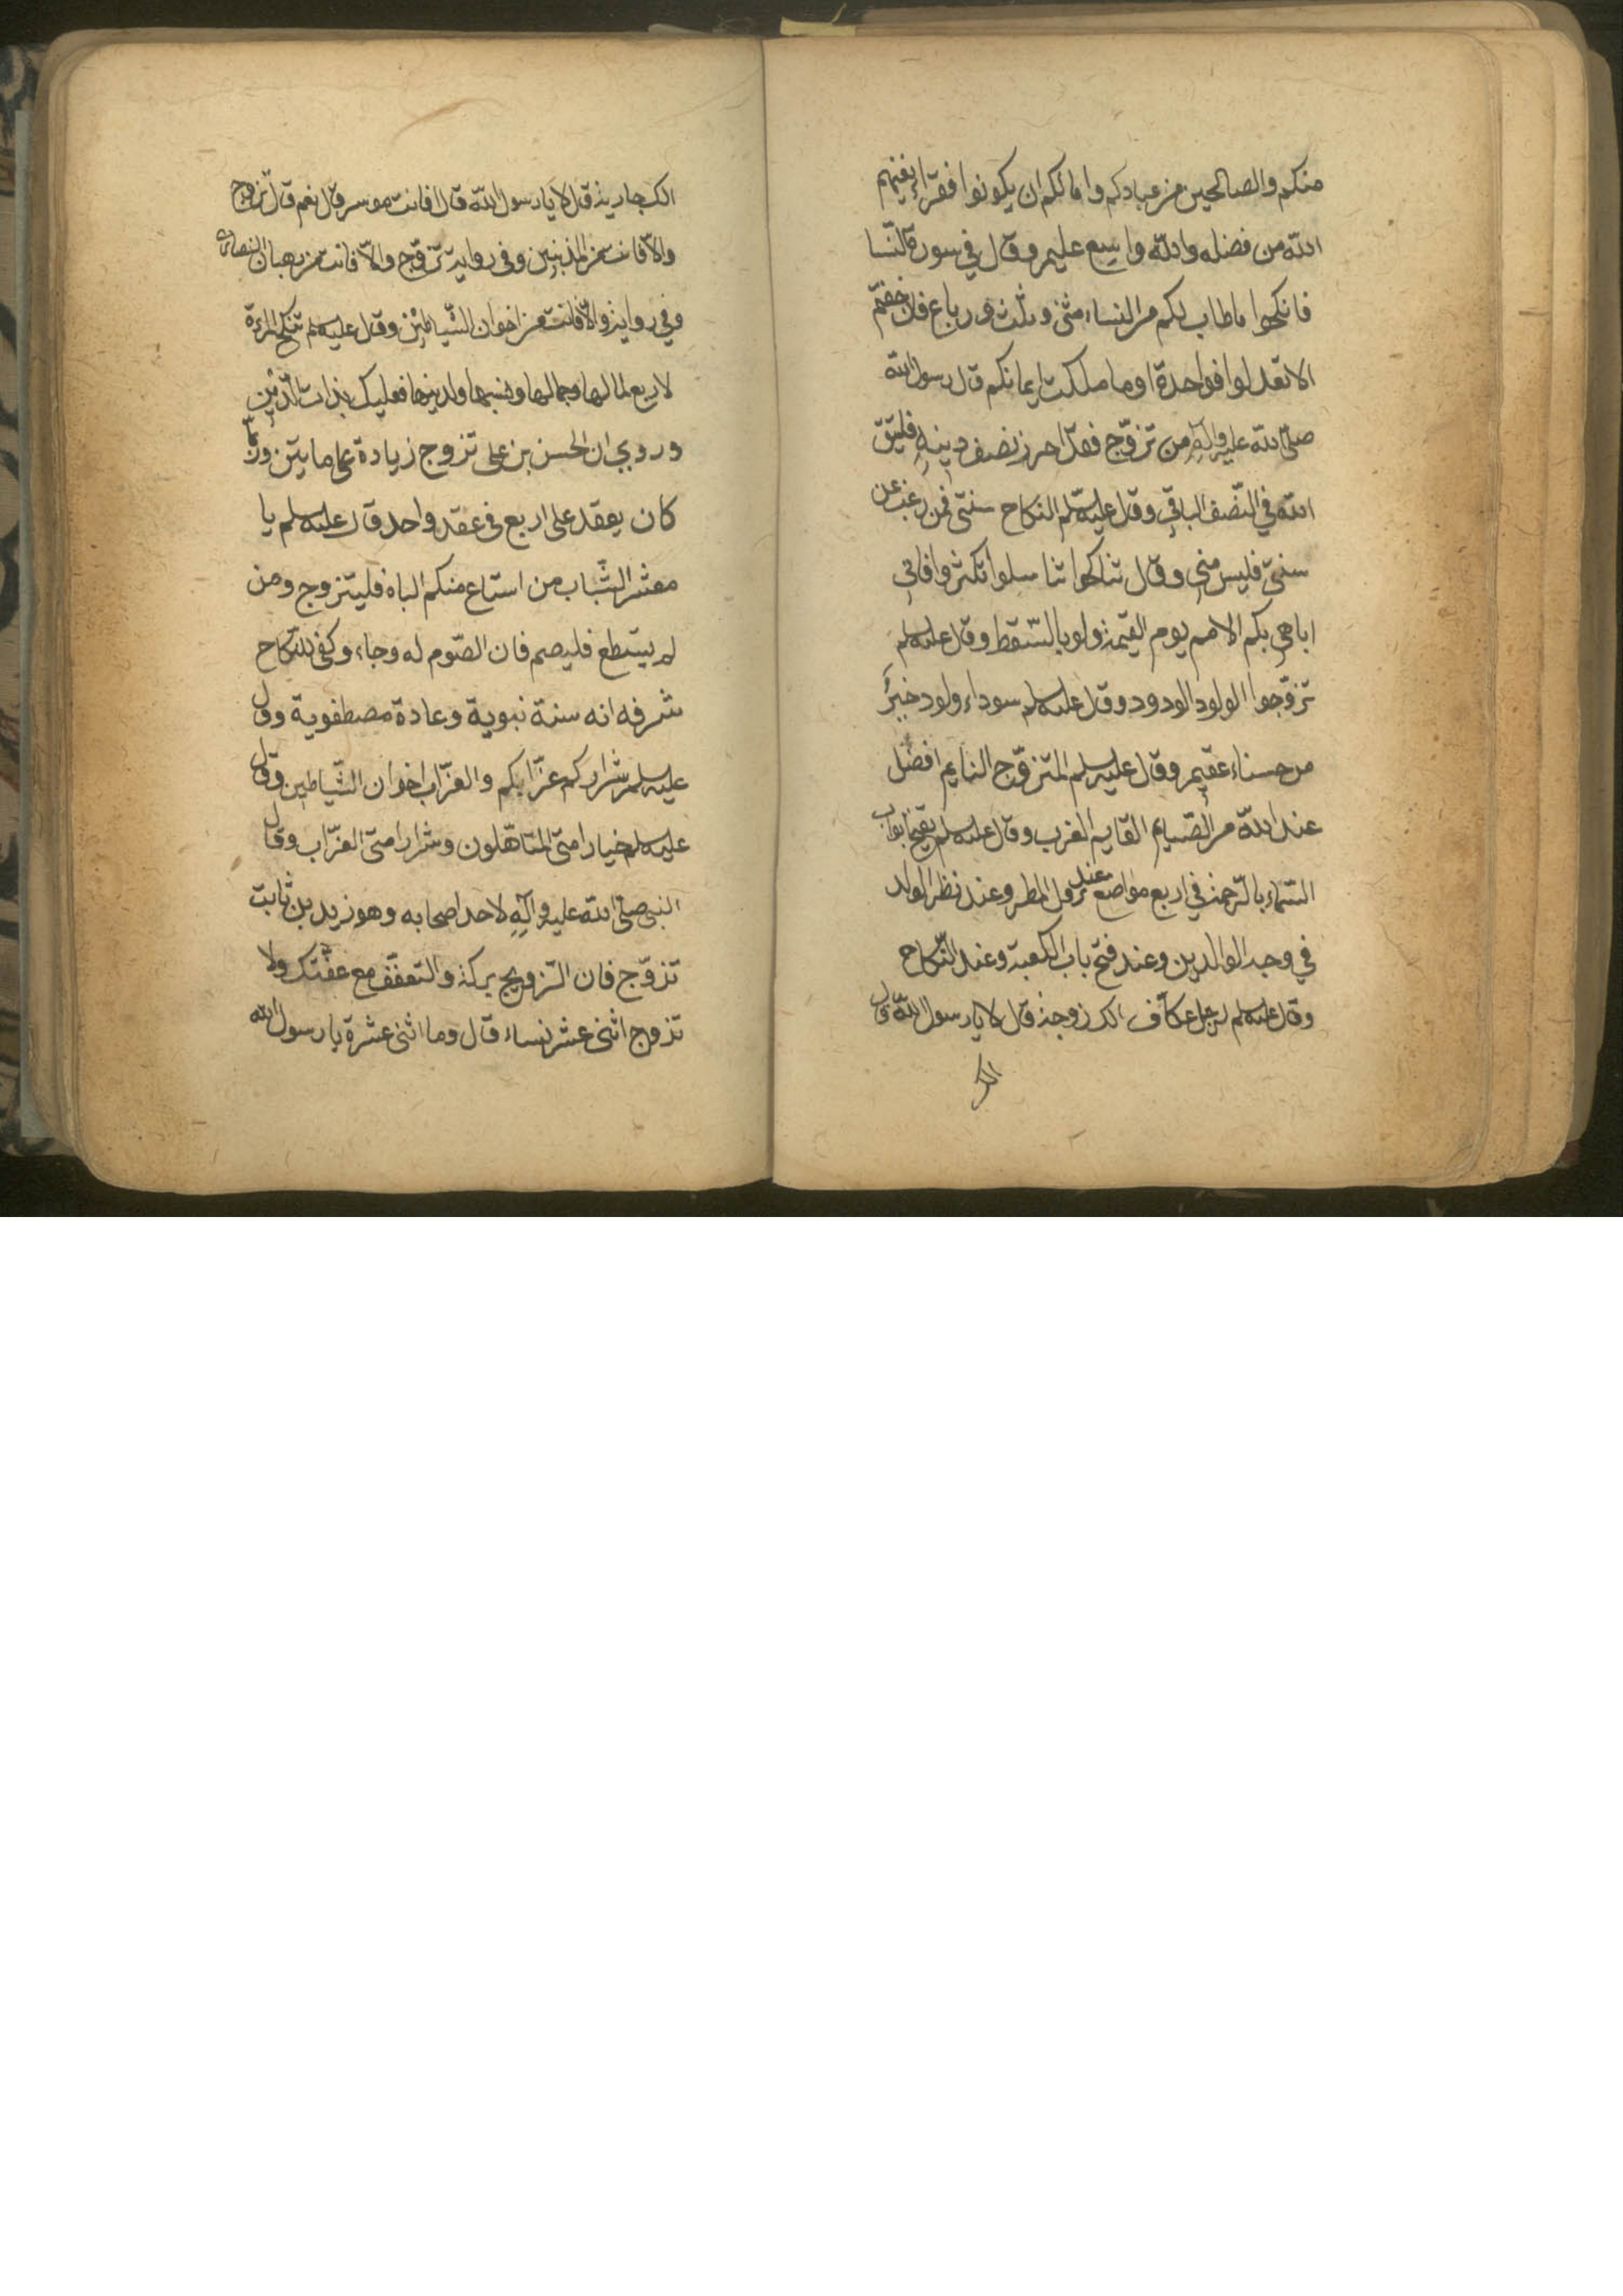 منكم والصالحين من عبادكم وامائكم ان يكونوا فقراء يغنهم
الله من فضله والله واسع عليم وقال في سورة النسا
فانكحوا ما طاب لكم من النساء مثنى وثلث ورباع فان خفتم
الا تعدلوا فواحدة او ما ملكت ايمانكم قال رسول الله
صلى الله عليه وآله من تزوّج فقد احرز نصف دينه فليتق
الله في النّصف الباقي وقال عليه السلم النكاح سنتي فمن رغب عن
سنتي فليس مني وقال تناكحوا تناسلوا تكثروا فاني
اباهي بكم الامم يوم القيمة ولو بالسّقط وقال عليه السلم
تزوّجوا الولود الودود وقال عليه السلم سوداء ولود خيرٌ
من حسناء عقيم وقال عليه السلم المتزوّج النايم افضل
عند الله من الصّايم القايم العزب وقال عليه السلم يفتح ابواب
السّماء بالرّحمة في اربع مواضع عند نزول المطر وعند نظر الولد
في وجه الوالدين وعند فتح باب الكعبة وعند النّكاح
وقال عليه السلم لرجل عكّاف الك زوجة قال لا يا رسول اللّه قال
الك
الك جارية قال لا يا رسول الله قال افانت موسر قال نعم قال تزوج
والّا فانت من المذنبين وفي رواية تزوّج والّا فانت من رهبان النصارى
وفي رواية والّا فانت من اخوان الشّياطين وقال عليه السلم تنكح المرءة
لاربع لمالها وجمالها ونسبها ولدينها فعليك بذات الدّين
وروي ان الحسن بن علي تزوج زيادة على مايتين وربّما
كان يعقد على اربع في عقد واحد قال عليه السلم يا
معشر الشّباب من استاع منكم الباه فليتزوج ومن
لم يستطع فليصم فان الصّوم له وجاء وكفى للنّكاح
شرفه انه سنة نبوية وعادة مصطفوية وقال
عليه السلم شراركم عزّابكم والعزّاب اخوان الشّياطين وقال
عليه السلم خيار امتي المتاهّلون وشرار امتي العزّاب وقال
النبي صلى الله عليه وآله لاحد اصحابه وهو زيد بن ثابت
تزوّج فان التزويج بركة والتعفّف مع عفّتك ولا
تزوج اثنى عشر نساء قال وما اثنى عشرة يا رسول الله